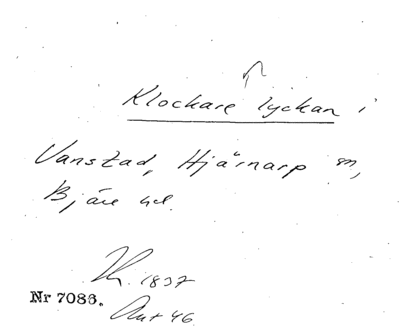 Klockare lyckan i
Vanstad, Hjärnarp sn,
Bjäre hd.
1837
Nr 7086.
Akt 46